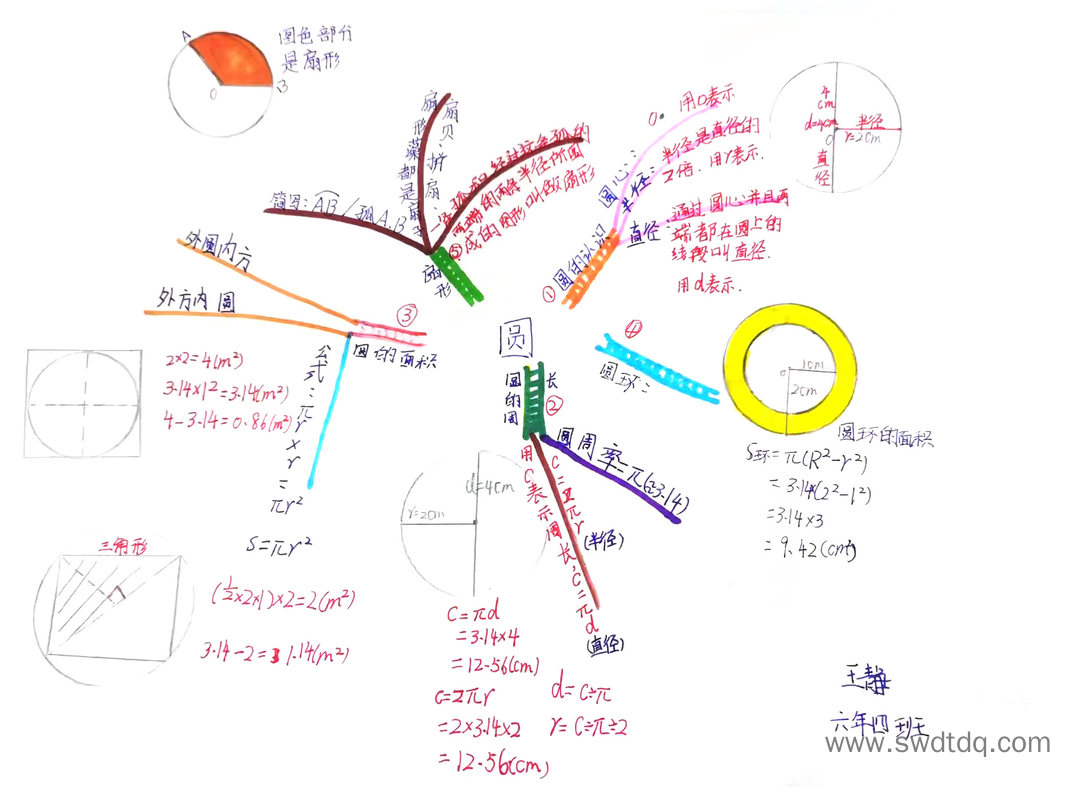 圆
①
圆的认识
圆心:
O
用O表示
半径:
半径是直径的
2倍.用r表示.
直径:
通过圆心并且两
端都在圆上的
线段叫直径.
用d表示.
4
cm
d=4cm
O
直
径
半径
r=2cm
④
圆环:
O
1cm
2cm
圆环的面积
S环=π(R²-r²)
=3.14×(2²-1²)
=3.14×3
=9.42(cm)
圆的周长
②
圆周率=π(≈3.14)
用C表示周长,
C=2πr
(半径)
C=πd
(直径)
d=4cm
r=2cm
C=πd
=3.14×4
=12.56(cm)
C=2πr
=2×3.14×2
=12.56(cm)
d=C÷π
r=C÷π÷2
③
圆的面积
外圆内方
外方内圆
公式:πr×r=πr²
S=πr²
2×2=4(m²)
3.14×1²=3.14(m²)
4-3.14=0.86(m²)
三角形
(½×2×1)×2=2(m²)
3.14-2=1.14(m²)
⑤
扇形
扇贝、拼扇、
扇形藻都是扇形
AB/弧A.B
一条弧和经过这条弧的
两端的两条半径所围
成的图形叫做扇形
A
B
O
图色部分
是扇形
王静
六年四班
www.swdtdq.com